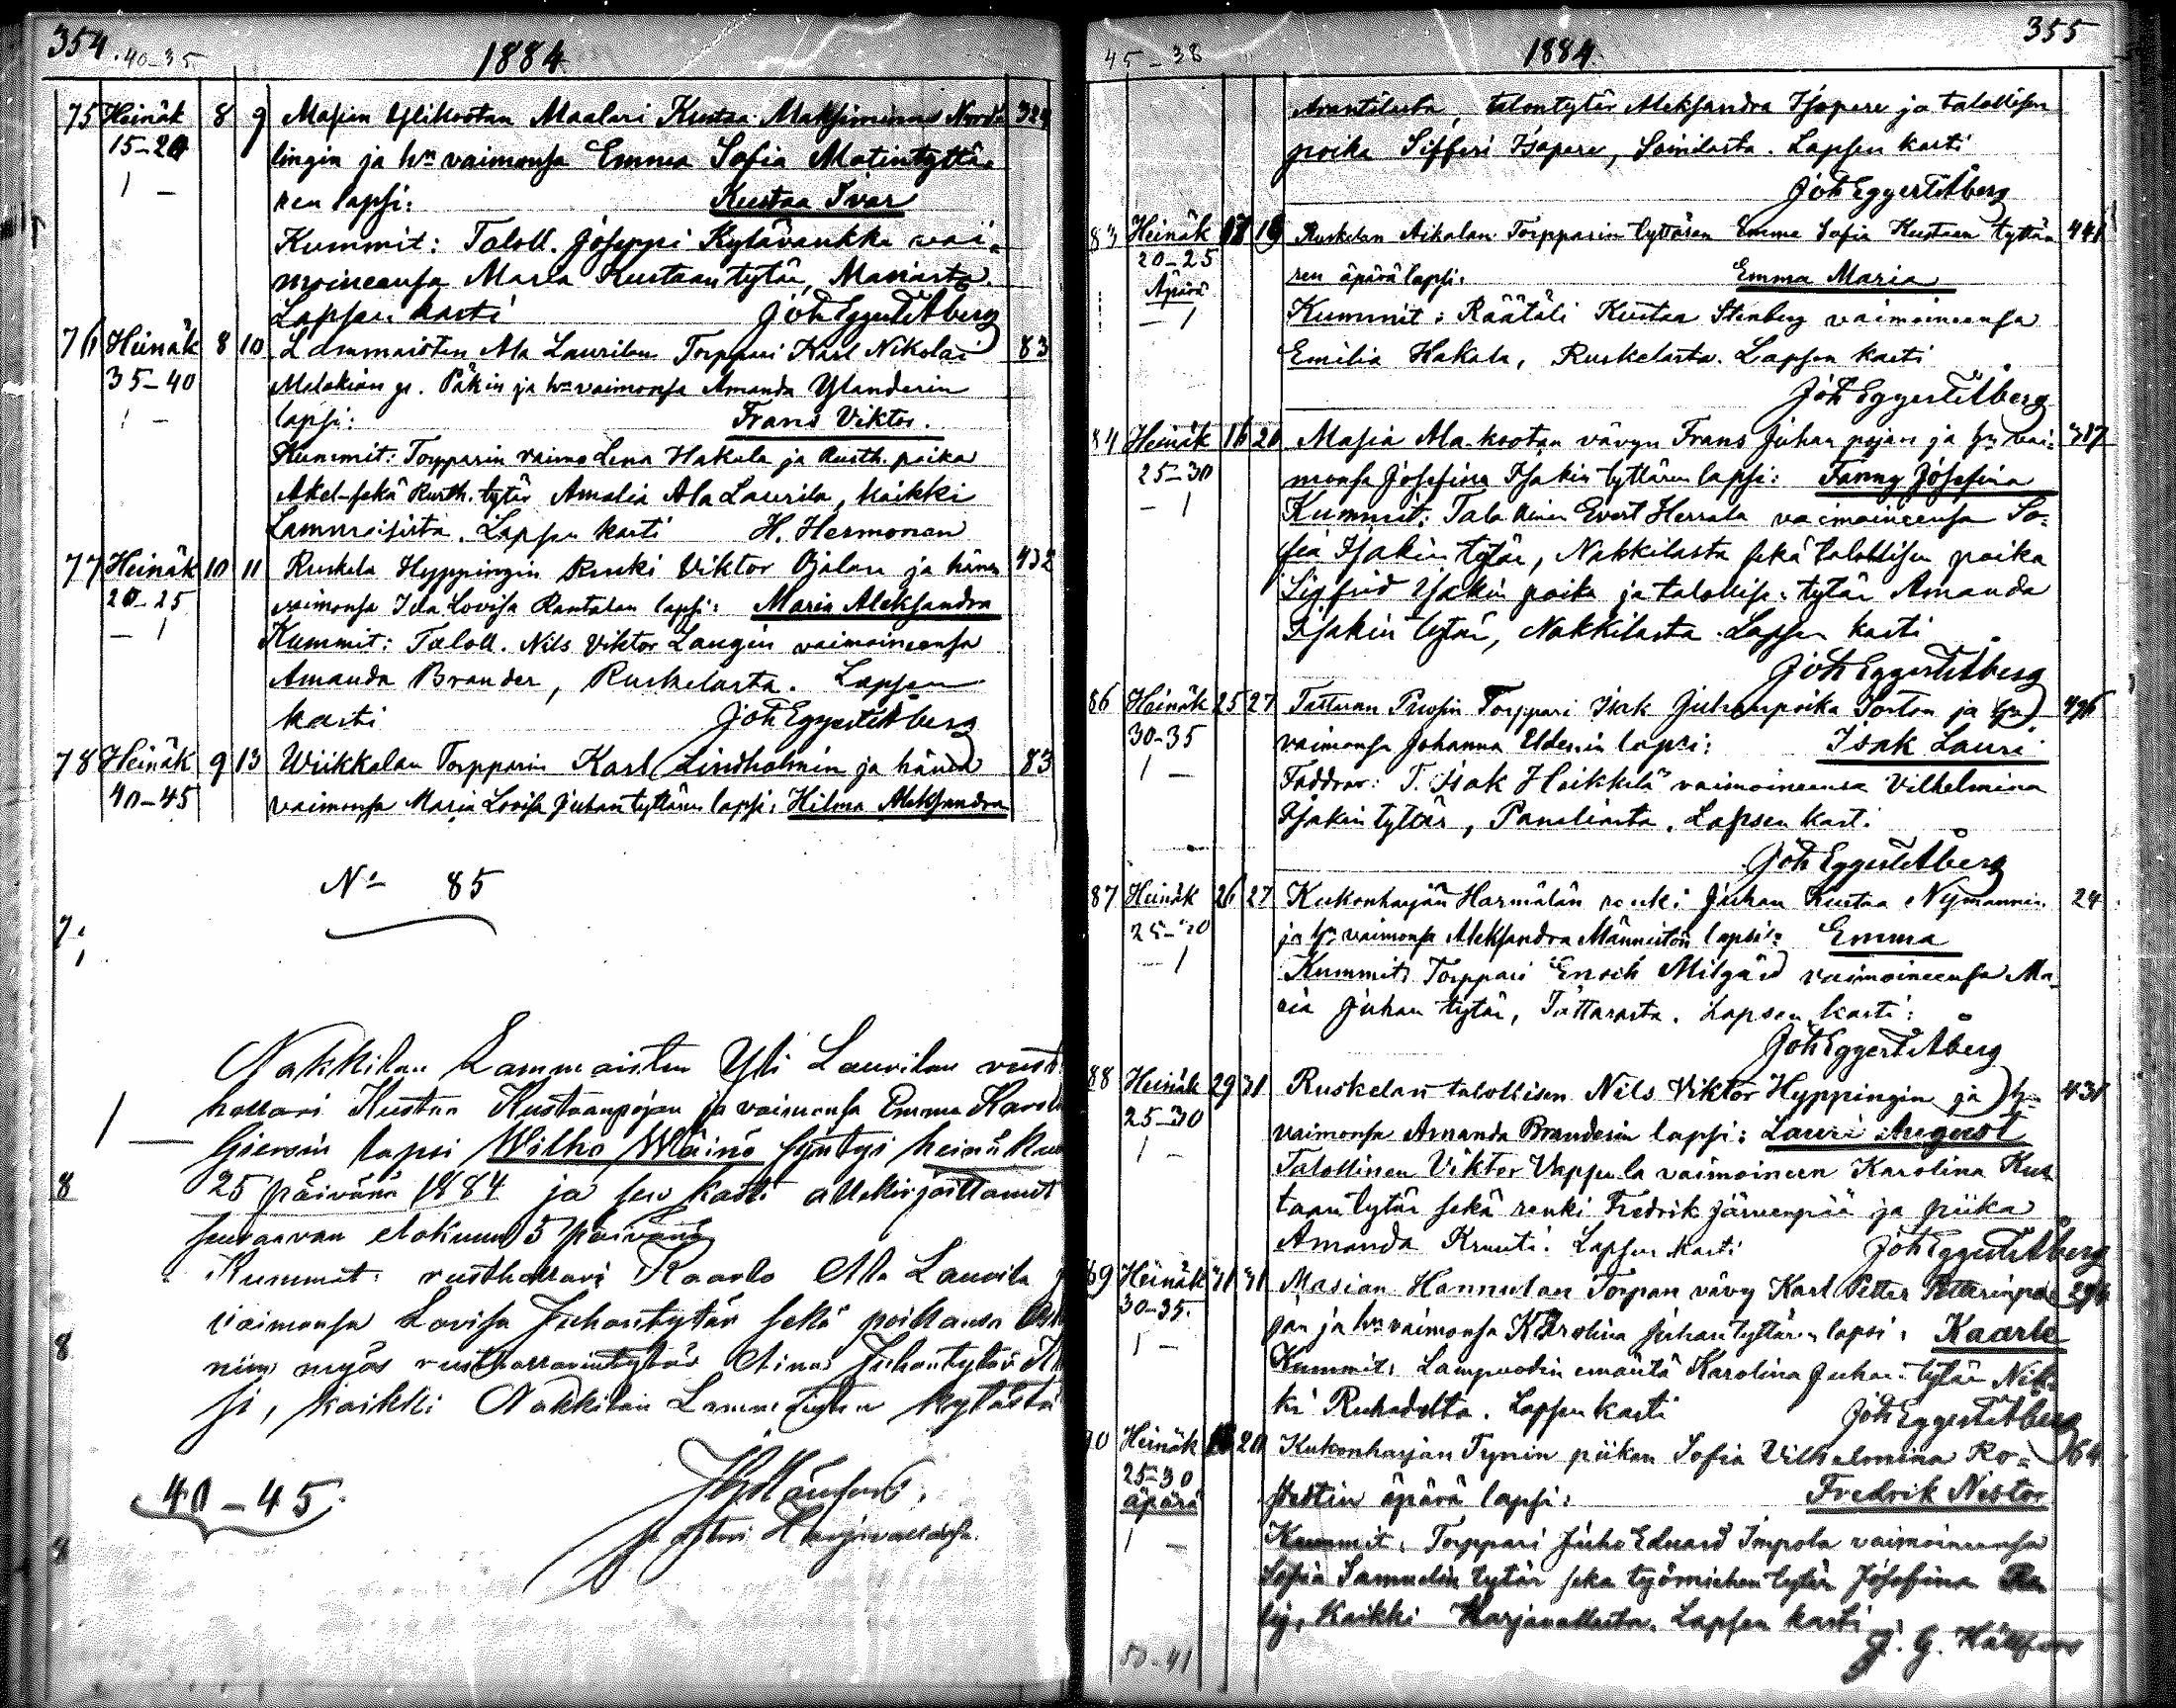 354. 40-35
1884
75 Heinäk 8 9 Masian Ylikootan Maalari Kustaa Maksiminus Nord- 324
15-20 lingin ja hn vaimonsa Emma Sofia Matintyttä-
1 — ren lapsi: Kustaa Ivar
Kummit: Taloll. Joseppi Kylävankka vai-
moineensa Maria Kustaantytär, Masiasta.
Lapsen kasti Joh Eggert Åberg
76 Heinäk 8 10 Lammaisten Ala Laurilan Torppari Karl Nikolai 83
35-40 Malakian p. Päkin ja hn vaimonsa Amanda Ylanderin
1 — lapsi: Frans Viktor.
Kummit: Torpparin vaimo Lena Hakala ja Rusth. poika
Akel sekä Rusth. tytär Amalia Ala Laurila, kaikki
Lammaisista. Lapsen kasti H. Hermonen
77 Heinäk 10 11 Ruskela Hyppingin Renki Viktor Ojalan ja hänen 432
20-25 vaimonsa Ida Lovisa Rantalan lapsi: Maria Aleksandra
— 1 Kummit: Taloll. Nils Viktor Laugin vaimoineensa
Amanda Brander, Ruskelasta. Lapsen
kasti Joh Eggert Åberg
78 Heinäk 9 13 Wiikkalan Torpparin Karl Lindholmin ja hänen 83
40-45 vaimonsa Maria Lovisa Juhantyttären lapsi: Hilma Aleksandra
No 85
7
Nakkilan Lammaisten Yli Laurilan rust
hollari Kustaa Kustaanpojan ja vaimonsa Emma Karol
1 — lapsi Wilho Wäinö syntyi heinäkuu
8 25 päivänä 1884 ja sen kasti allekirjoittanut
seuraavan elokuun 3 päivänä
Kummit: rusthollari Kaarlo Ala Laurila j
vaimonsa Lovisa Juhantytär sekä poikansa
8 niin myös rusthollarintytär Aina Juhantytär
si, kaikki Nakkilan Lammaisten kylästä
40-45
pastori Harjavallassa.
8
45-38
1884
355
talontytär Aleksandra Isopere ja talollisen
poika Sifferi Isopere, Soinilasta. Lapsen kasti
Joh Eggert Åberg
83 Heinäk 18 19 Ruskelan Aikalan Torpparin tyttären Emma Sofia Kustaan tyttä- 441
20-25 ren äpärä lapsi: Emma Maria
Äpärä
— 1 Kummit: Räätäli Kustaa Stenberg vaimoineensa
Emilia Hakala, Ruskelasta. Lapsen kasti
Joh Eggert Åberg
84 Heinäk 16 20 Masia Ala-kootan vävyn Frans Juhan pojan ja hn vai- 317
25-30 monsa Josefina Isakin tyttären lapsi: Fanny Josefina
— 1 Kummit: Talollinen Evert Herrala vaimoineensa So-
fia Isakin tytär, Nakkilasta sekä talollisen poika
Sigfrid Isakin poika ja talollis. tytär Amanda
Isakin tytär, Nakkilasta. Lapsen kasti
Joh Eggert Åberg
86 Heinäk 25 27 Tattaran Torppari Isak Juhanpoika Torton ja hn 496
30-35 vaimonsa Johanna Elderin lapsi: Isak Lauri
1 — Faddrar: T. Isak Heikkilä vaimoineensa Vilhelmina
Isakin tytär, Paneliasta. Lapsen kasti
Joh Eggert Åberg
87 Heinäk 26 27 Kukonharjan Harmälän renki Juhan Kustaa Nymannin 24
25-30 ja hn vaimonsa Aleksandra Männistön lapsi: Emma
— 1 Kummit: Torppari Enoch Milgård vaimoineensa Ma-
ria Juhan tytär, Tattarasta. Lapsen kasti:
Joh Eggert Åberg
88 Heinäk 29 31 Ruskelan talollisen Nils Viktor Hyppingin ja hn 431
25-30 vaimonsa Amanda Branderin lapsi: Lauri August
1 — Talollinen Viktor Uppula vaimoineen Karolina Kus-
taan tytär sekä renki Fredrik Järvenpää ja piika
Amanda Kruuti. Lapsen kasti Joh Eggert Åberg
89 Heinäk 31 31 Masian Hannulan Torpan vävy Karl Petter Petterinpo- 296
30-35. jan ja hn vaimonsa Karolina Juhan tyttären lapsi: Kaarle
1 — Kummit: Lampuodin emäntä Karolina Juhan tytär Nik-
ki Ruhadelta. Lapsen kasti Joh Eggert Åberg
90 Heinäk 18 20 Kukonharjan Tynin piikan Sofia Vilhelmina Ro- 64
25-30 stedtin äpärä lapsi: Fredrik Nestor
äpärä
1 — Kummit: Torppari Juho Eduard Impola vaimoineensa
Sofia Samuelin tytär seka työmiehen tytär Josefina
kaikki Harjavallasta. Lapsen kasti
J. G. Hällfors
50-41